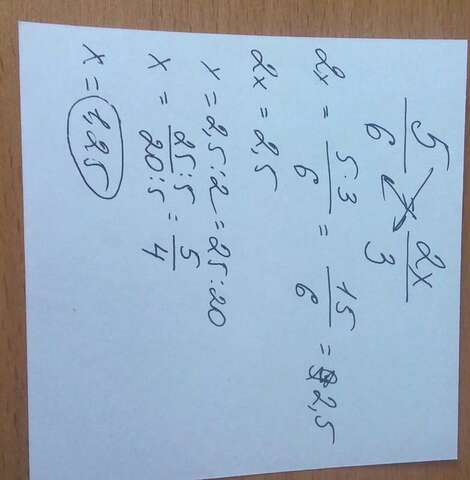 5/6 = 2x/3
2x = 5·3/6 = 15/6 = 2,5
2x = 2,5
x = 2,5 : 2 = 25 : 20
x = 25:5/20:5 = 5/4
x = 1,25